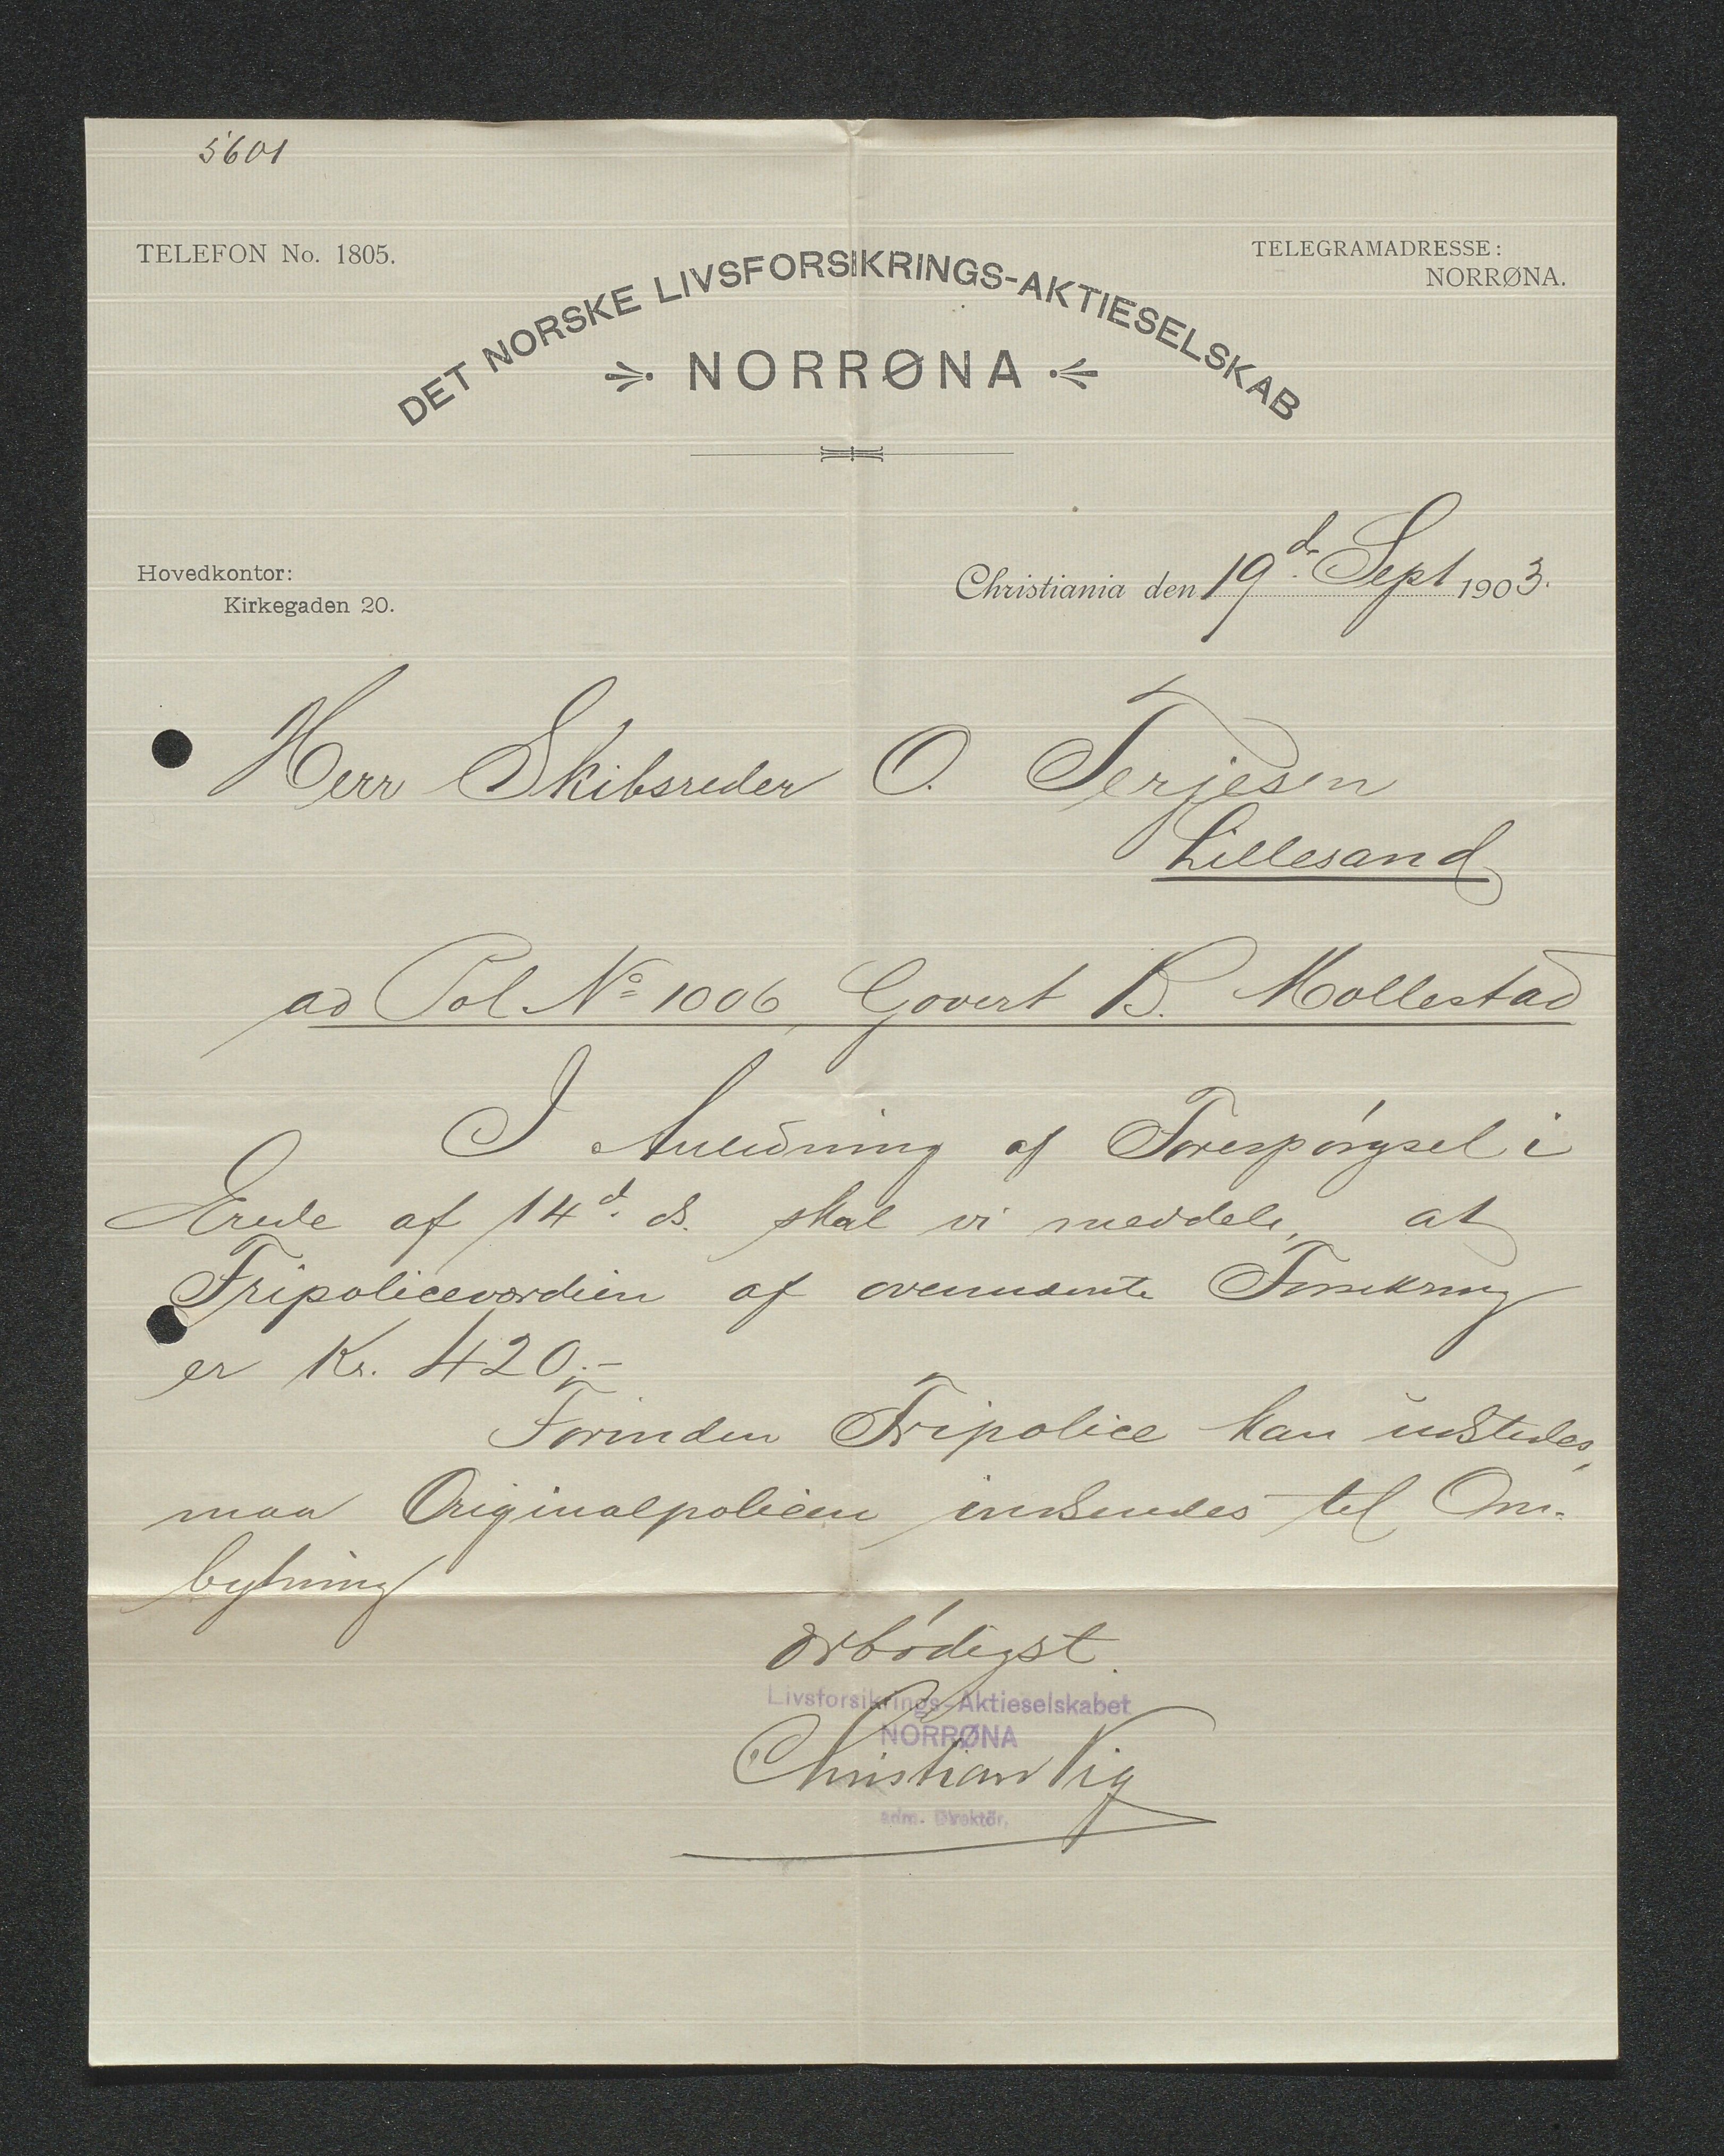 5601
TELEFON No. 1805.
TELEGRAMADRESSE:
NORRØNA.
DET NORSKE LIVSFORSIKRINGS-AKTIESELSKAB
NORRØNA
Hovedkontor:
Kirkegaden 20.
Christiania den 19d. Sept 1903.
Herr Skibsreder O. Terjesen
Lillesand
ad Pol No 1006, Govert B. Mollestad
I Anledning af Forespørgsel i
Ærede af 14d. ds. skal vi meddele, at
Fripoliceværdien af ovennævnte Forsikring
er Kr. 420.-
Forinden Fripolice kan udstedes,
maa Originalpolicen indsendes til Om-
bytning
Ærbødigst
Livsforsikrings-Aktieselskabet
NORRØNA
Christian Vig
adm. Direktör.